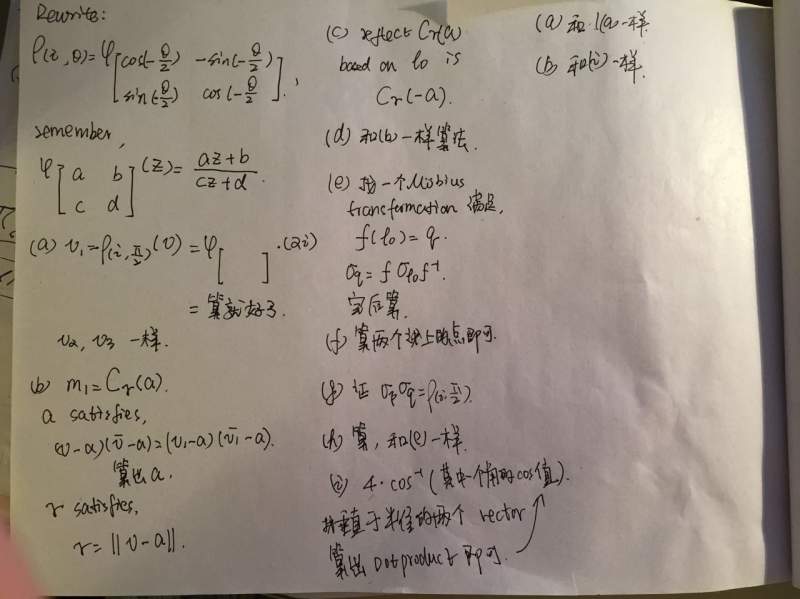 Rewrite:
ρ(i, θ) = φ[cos(-θ/2) -sin(-θ/2)
sin(-θ/2) cos(-θ/2)],
remember,
φ[a b
c d](z) = az+b / cz+d.
(a) v₁ = ρ(i, π/2)(v) = φ[ ]·(2i)
= 算就好了.
v₂, v₃ 一样.
(b) m₁ = Cr(a).
a satisfies,
(v-a)(v̄-a) = (v₁-a)(v̄₁-a).
算出a.
r satisfies,
r = ||v-a||.
(c) reflect Cr(a)
based on l₀ is
Cr(-a).
(d) 和(b)一样算法.
(e) 找一个Möbius
transformation 满足,
f(l₀) = q.
σq = f σl₀ f⁻¹.
完后算.
(f) 算两个线上的点即可.
(g) 证 σp σq = ρ(i, π/2).
(h) 算, 和(e)一样.
(i) 4·cos⁻¹(其中一个角的cos值).
找垂直于半径的两个 vector
算出 Dot product 即可.
(a) 和 1(a)一样
(b) 和(i)一样.